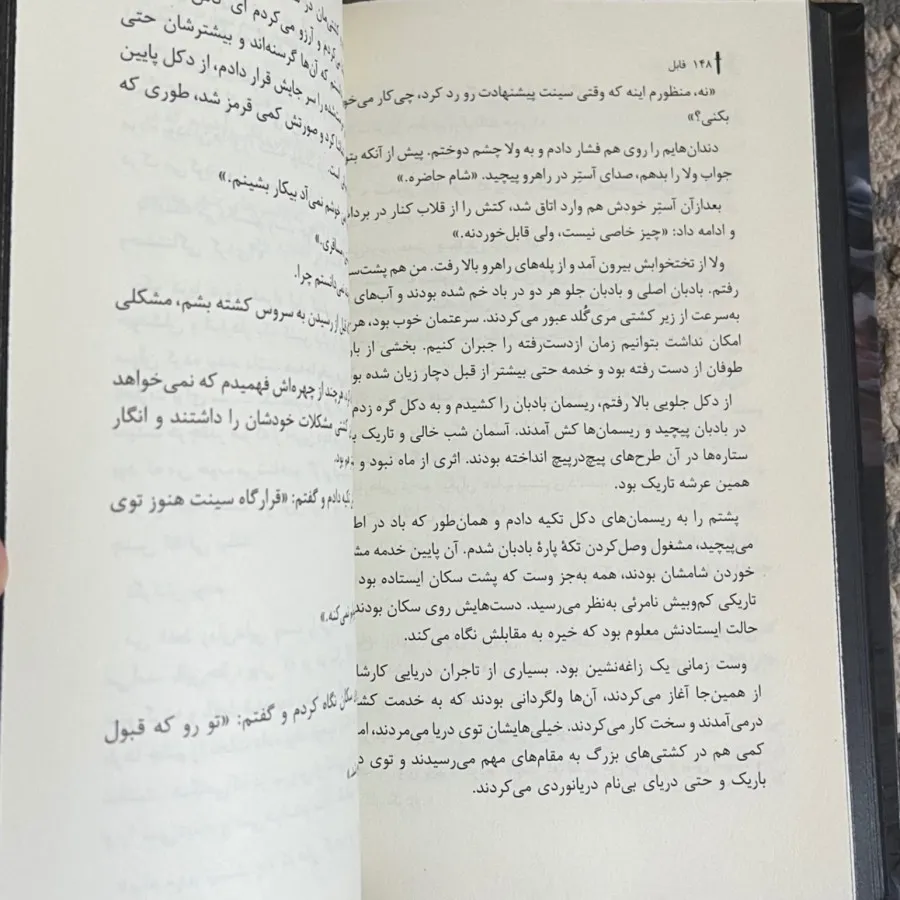 ۱۴۸ فابل
«نه، منظورم اینه که وقتی سینت پیشنهادت رو رد کرد، چی‌کار
بکنی؟»
دندان‌هایم را روی هم فشار دادم و به ولا چشم دوختم. پیش از آنکه
جواب ولا را بدهم، صدای آستِر در راهرو پیچید. «شام حاضره.»
بعدازآن آستِر خودش هم وارد اتاق شد، کتش را از قلاب کنار در
و ادامه داد: «چیز خاصی نیست، ولی قابل‌خوردنه.»
ولا از تختخوابش بیرون آمد و از پله‌های راهرو بالا رفت. من هم
رفتم. بادبان اصلی و بادبان جلو هر دو در باد خم شده بودند و آب‌های
به‌سرعت از زیر کشتی مری‌گُلد عبور می‌کردند. سرعتمان خوب بود،
امکان نداشت بتوانیم زمان ازدست‌رفته را جبران کنیم. بخشی از
طوفان از دست رفته بود و خدمه حتی بیشتر از قبل دچار زیان شده
از دکل جلویی بالا رفتم، ریسمان بادبان را کشیدم و به دکل گره زدم
در بادبان پیچید و ریسمان‌ها کش آمدند. آسمان شب خالی و تاریک
ستاره‌ها در آن طرح‌های پیچ‌درپیچ انداخته بودند. اثری از ماه نبود و
همین عرشه تاریک بود.
پشتم را به ریسمان‌های دکل تکیه دادم و همان‌طور که باد در
می‌پیچید، مشغول وصل‌کردن تکهٔ پارهٔ بادبان شدم. آن پایین خدمه
خوردن شامشان بودند، همه به‌جز وست که پشت سکان ایستاده بود
تاریکی کم‌وبیش نامرئی به‌نظر می‌رسید. دست‌هایش روی سکان بودند
حالت ایستادنش معلوم بود که خیره به مقابلش نگاه می‌کند.
وست زمانی یک زاغه‌نشین بود. بسیاری از تاجران دریایی
از همین‌جا آغاز می‌کردند، آن‌ها ولگردانی بودند که به خدمت
درمی‌آمدند و سخت کار می‌کردند. خیلی‌هایشان توی دریا می‌مردند،
کمی هم در کشتی‌های بزرگ به مقام‌های مهم می‌رسیدند و توی
باریک و حتی دریای بی‌نام دریانوردی می‌کردند.
کردم و آرزو می‌کردم ای
که آن‌ها گرسنه‌اند و بیشترشان حتی
را سر جایش قرار دادم، از دکل پایین
کرد و صورتش کمی قرمز شد، طوری که
خوشم نمی‌آد بیکار بشینم.»
چرا.
از رسیدن به سروس کشته بشم، مشکلی
هرچند از چهره‌اش فهمیدم که نمی‌خواهد
مشکلات خودشان را داشتند و انگار
بود.
دادم و گفتم: «قرارگاه سینت هنوز توی
سکان نگاه کردم و گفتم: «تو رو که قبول